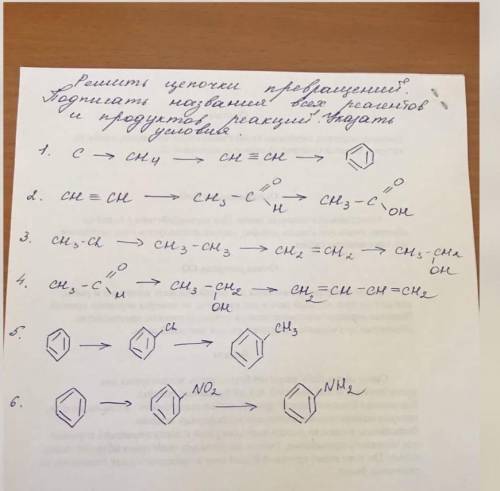 Решить цепочки превращений.
Подписать названия всех реагентов
и продуктов реакций. Указать
условия.
1. C → CH4 → CH≡CH →
2. CH≡CH → CH3-C O H → CH3-C O OH
3. CH3-Cl → CH3-CH3 → CH2=CH2 → CH3-CH2 OH
4. CH3-C O H → CH3-CH2 OH → CH2=CH-CH=CH2
5. → Cl → CH3
6. → NO2 → NH2